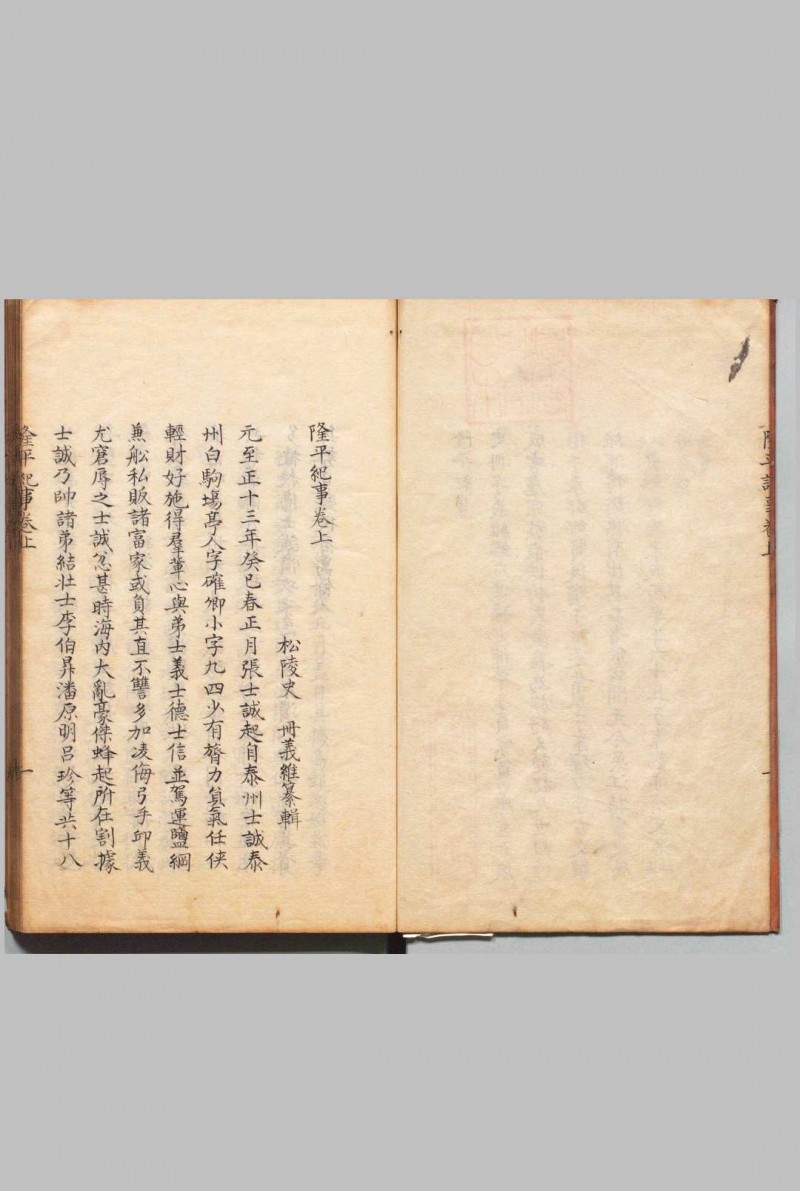 隆平紀事卷上
隆平紀事卷上
松陵史　冊義維纂輯
元至正十三年癸巳春正月張士誠起自泰州士誠泰
州白駒場亭人字確卿小字九四少有膂力負氣任俠
輕財好施得羣輩心與弟士義士德士信並駕運鹽綱
兼舩私販諸富家或負其直不讐多加凌侮弓手邱義
尤窘辱之士誠忿甚時海內大亂豪傑蜂起所在割據
士誠乃帥諸弟結壯士李伯昇潘原明呂珍等共十八
隆平紀事卷上
一